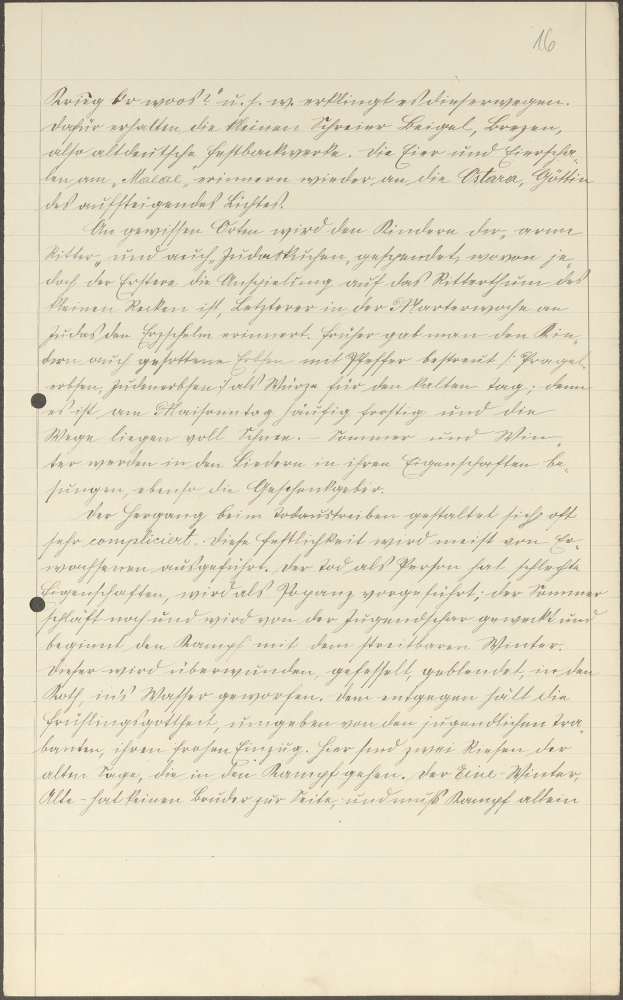 16
Krieg ǒr woos?" u. s. w. erklingt es dieserwegen.
Dafür erhalten die kleinen Schreier Beigel, Brezen,
also altdeutsche Festbackwerke. Die Eier und Eierscha-
len am „Maiäl" erinnern wieder an die Ostara, Göttin
des aufsteigenden Lichtes.
An gewissen Orten wird den Kindern der „arme
Ritter" und auch „Judaskuchen" gespendet, wovon je-
doch der Erstere die Anspielung auf das Ritterthum des
kleinen Recken ist, Letzterer in der Marterwoche an
Judas den Erzschelm erinnert. Früher gab man den Kin-
dern auch gesottene Erbsen mit Pfeffer bestreut /: Pragel-
erbsen, Judenerbsen :/ als Würze für den kalten Tag; denn
es ist am Maisonntag häufig frostig und die
Wege liegen voll Schnee. – Sommer und Win-
ter werden in den Liedern in ihren Eigenschaften be-
sungen, ebenso die Geschenkgeber.
Der Hergang beim Todaustreiben gestaltet sich oft
sehr compliciert. Diese Festlichkeit wird meist von Er-
wachsenen ausgeführt. Der Tod als Person hat schlechte
Eigenschaften, wird als Popanz vorgeführt; der Sommer
schläft noch und wird von der Jugendschar geweckt und
beginnt den Kampf mit dem streitbaren Winter.
Dieser wird überwunden, gefesselt, geblendet, in den
Koth, in's Wasser geworfen. Dem entgegen hält die
Frühlingsgottheit, umgeben von den jugendlichen Tra-
banten, ihren frohen Einzug. Hier sind zwei Riesen der
alten Sage, die in den Kampf gehen. Der Eine – Winter,
Alte – hat keinen Bruder zur Seite, und muß Kampf allein